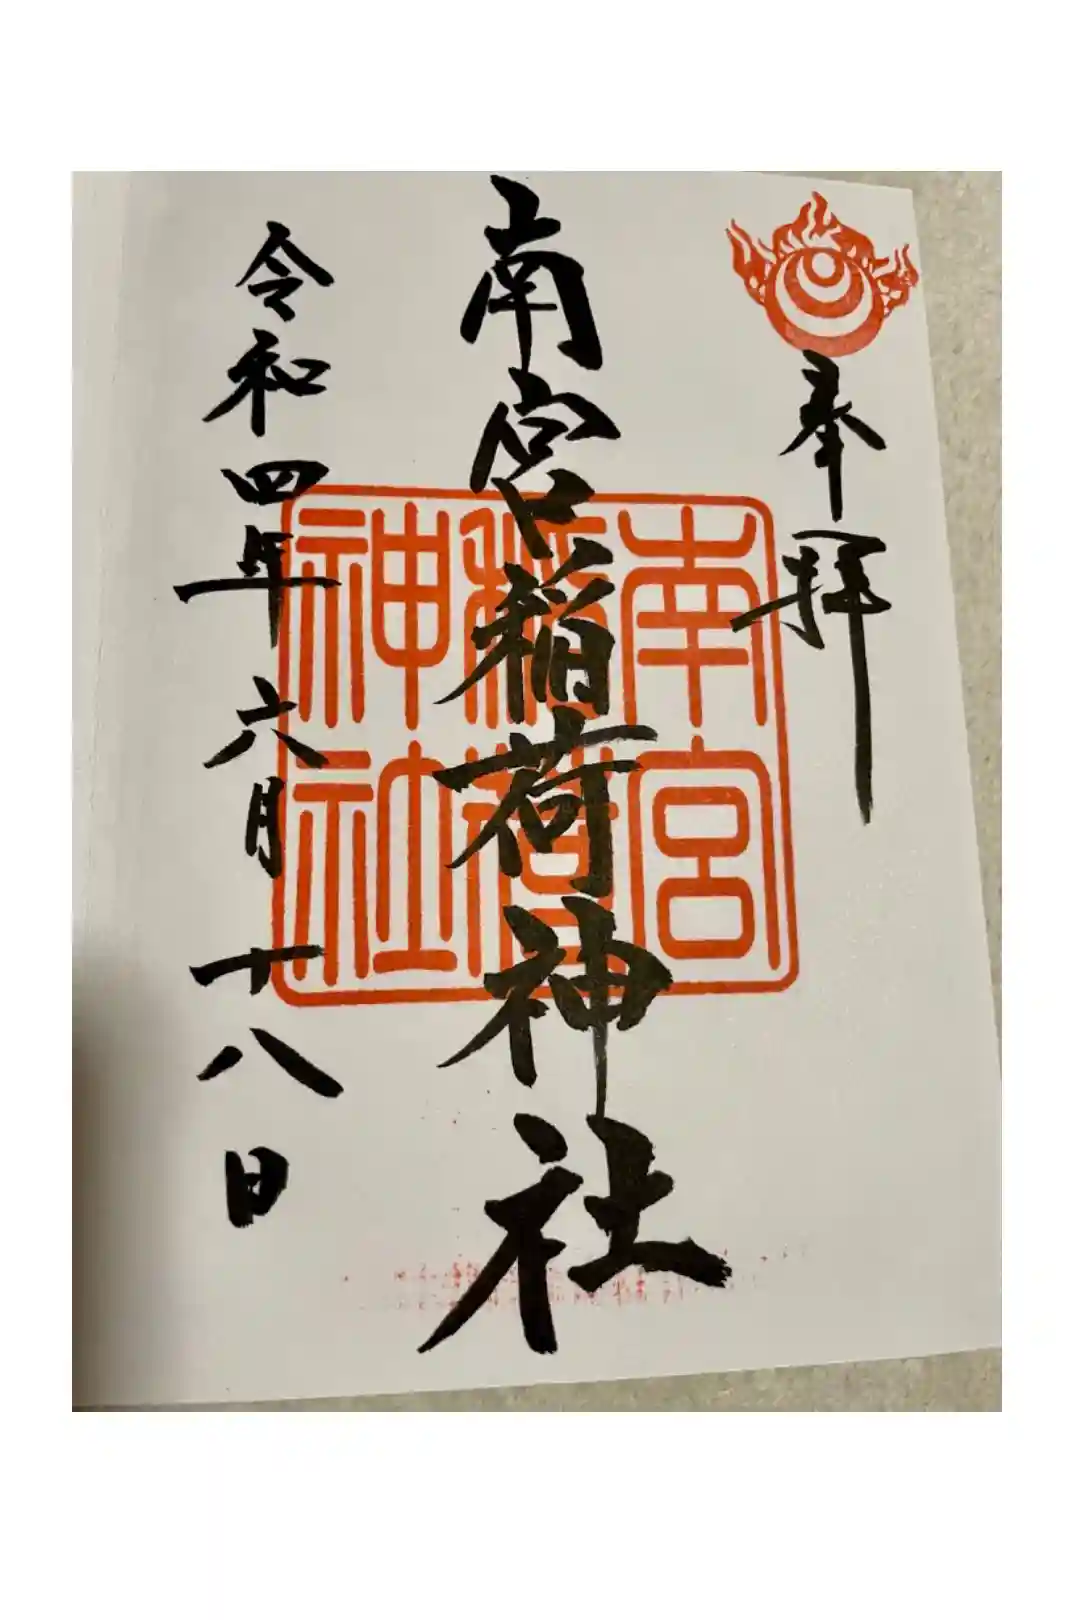 奉拝
南宮稲荷神社
令和四年六月十八日
南宮
稲荷
神社